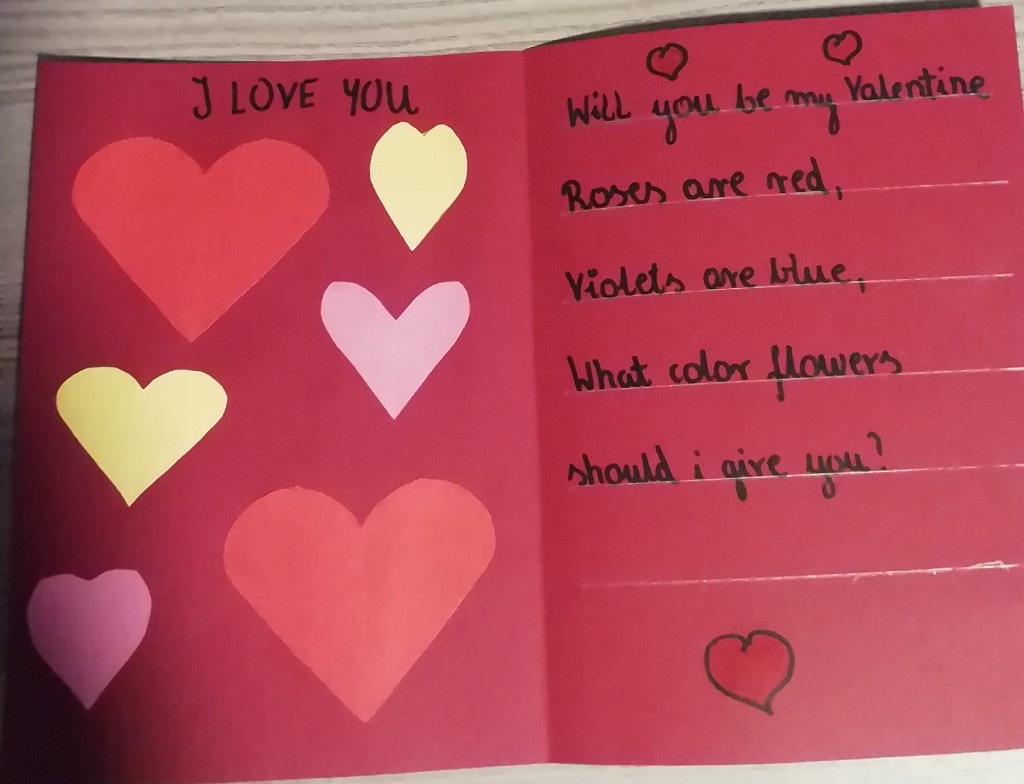 I LOVE YOU
Will you be my Valentine
Roses are red,
Violets are blue,
What color flowers
should i give you?